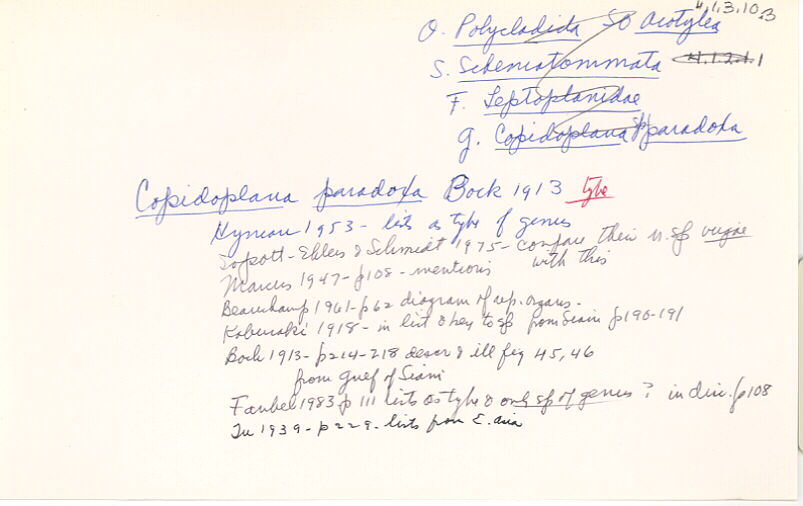 4.1.3.10.3
O. Polycladida SO Acotylea
S. Schematommata 4.1.2.1.1
F. Leptoplanidae
g. Copidoplana sp paradoxa
Copidoplana paradoxa Bock 1913 type
Hyman 1953 - lists as type of genus
Sopott-Ehlers & Schmidt 1975 - compare their n. sp virginae
with this
Marcus 1947 - p108 - mentions
Beauchamp 1961 - p62 diagram of rep. organs -
Kaburaki 1918 - in list & key to sp from Siam p190-191
Bock 1913 - p214-218 descr & ill fig 45, 46
from Gulf of Siam
Faubel 1983 p 111 lists as type & only sp of genus ? in disc. p108
Tu 1939 - p229 - lists from E. asia